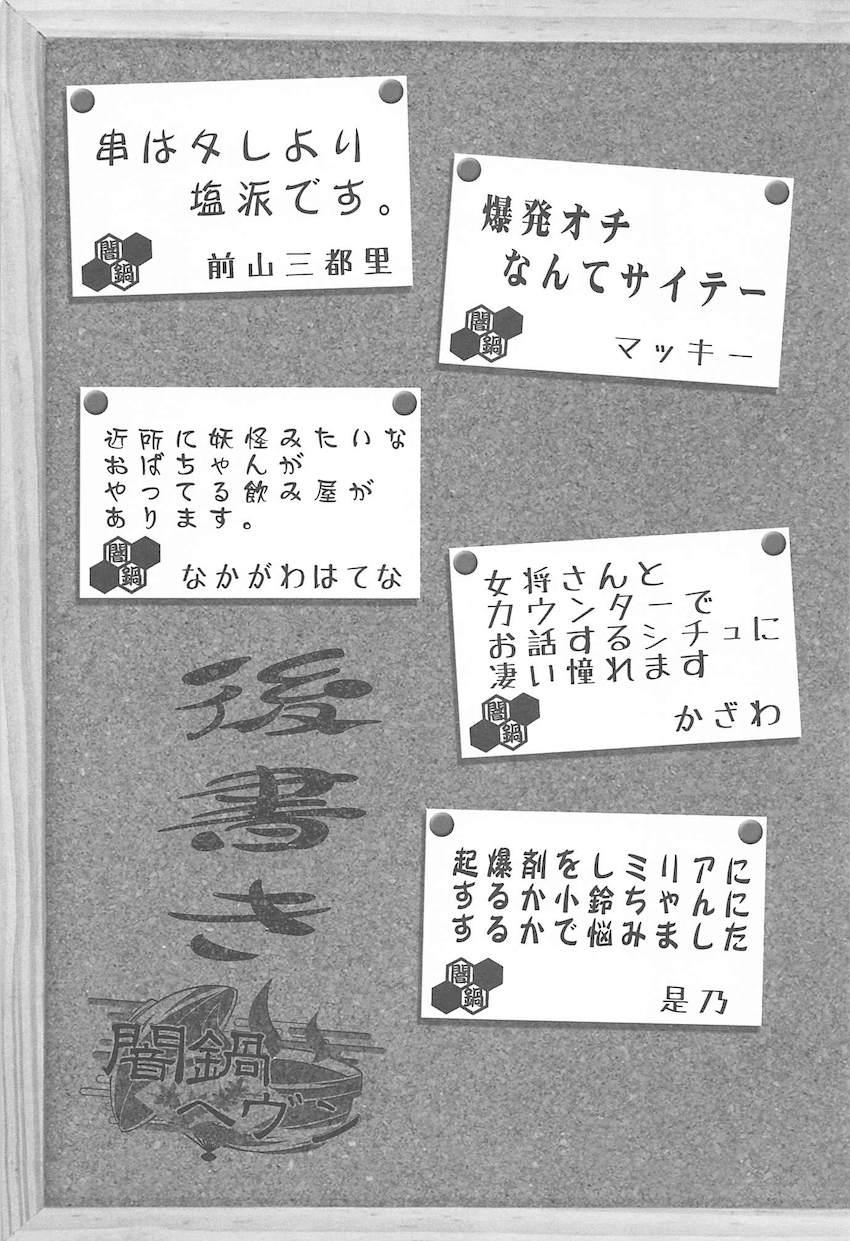 串はタレより
塩派です。
闇鍋
前山三都里
爆発オチ
なんてサイテー
闇鍋
マッキー
近所に妖怪みたいな
おばちゃんが
やってる飲み屋が
あります。
闇鍋
なかがわはてな
女将さんと
カウンターで
お話するシチュに
凄い憧れます
闇鍋
かざわ
起爆剤をレミリアに
するか小鈴ちゃんに
するかで悩みました
闇鍋
是乃
後書き
闇鍋
ヘヴン